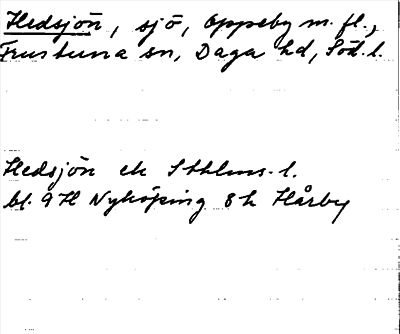 Hedsjön, sjö, Oppeby m. fl.,
Frustuna sn, Daga hd, Söd. l.
Hedsjön ek Sthlms. l.
bl. 9H Nyköping 8h Hårby